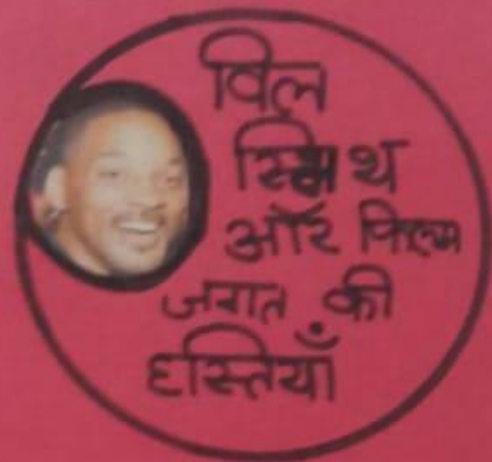 विल
स्मिथ
और फिल्म
जगत की
हस्तियाँ